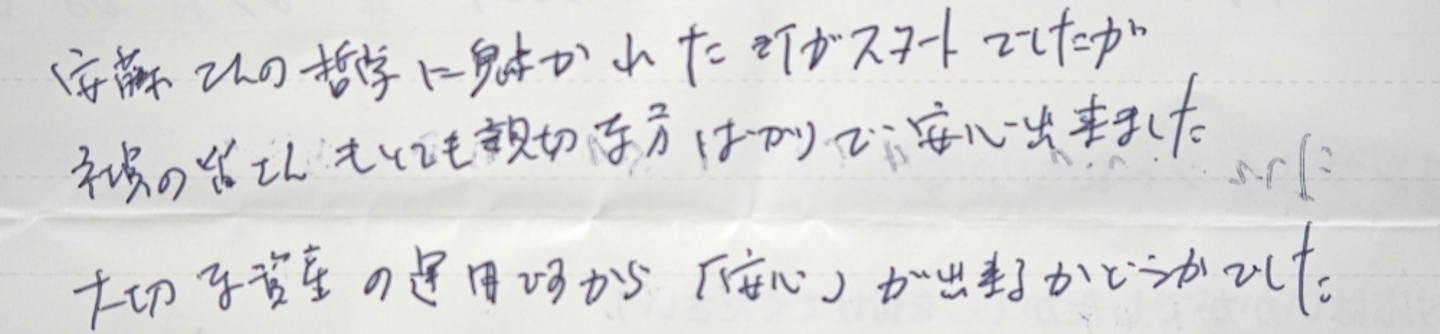 安藤さんの哲学に魅かれた所がスタートでしたが
社員の皆さんもとても親切な方ばかりで安心出来ました
大切な資産の運用ですから「安心」が出来るかどうかでした